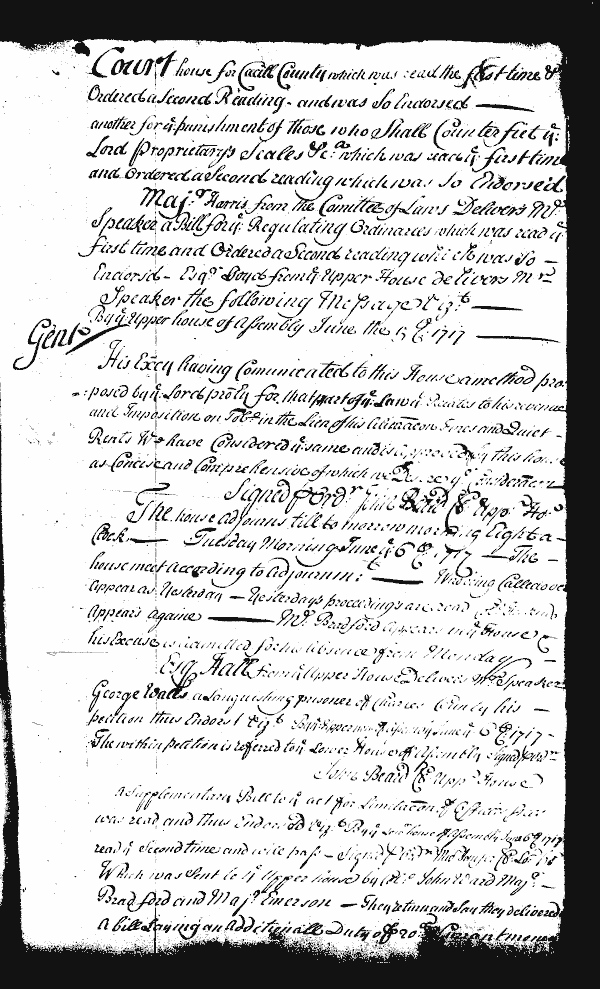 Court house for Cæcill County which was read the first time &
Ordered a Second Reading - and was So Endorsed —
another for yͤ punishment of those who Shall Counterfiet yͤ
Lord Proprietarys Seales &cͣ which was read yͤ first time
and Ordered a Second reading which was So Endorsed
Majʳ Harris from the Comittee of Laws Delivers Mʳ
Speaker a Bill for yͤ Regulating Ordinaries which was read yͤ
first time and Ordered a Second reading which was So —
Endorsd - Esqʳ Loyd from yͤ Upper House delivers Mʳ
Speaker the following Message Vizᵗ —
By yͤ Upper house of Assembly June the 1717 —
Gentⁿ
His Excy having Comunicated to this House a method pro:
:posed by yͤ Lord proty for that part of yͤ Law yͭ Relates to his revenue
and Imposition on Tobᵒ in the Lieu of his Alienacon Fines and Quiet -
Rents We have Considered yͤ same and is approved by this house
as Concise and Comprehensive of which we Desire yͬ Consideracon
Signed p Ordʳ John Beard Cl Upp Ho
The house adjourns till to morrow morning Eight a -
Clock — Tuesday Morning June yͤ 6 1717 — The -
house meet According to adjournmᵗ — being Called over
appear as Yesterday — Yesterdays proceedings are read
Appears againe — Mʳ Bradford appears in yͤ House &
his Excuse is admitted for his Absence from Monday
Esqʳ Hall from yͤ Upper House Delivers Mʳ Speaker
George Walls a Languishing prisoner of Charles County his —
petition thus Endorst Vizᵗ By yͤ Upper house of Assembly June yͤ 6 1717 -
The within petition is referred to yͤ Lower House of Assembly Signed p Ordʳ
John Beard Cl Upp House
A Supplementary Bill to yͤ act for Limitacon of
was read and thus Endorsd Vizᵗ By yͤ Lowʳ house of Assembly June 6 1717
read yͤ Second time and will pass - Signed p Ordʳ
Which was Sent to yͤ Upper house by John Ward Majʳ -
Bradford and Majʳ Emerson — They return and Say they delivered
A bill Laying an Additionall Duty of 20 Currant money